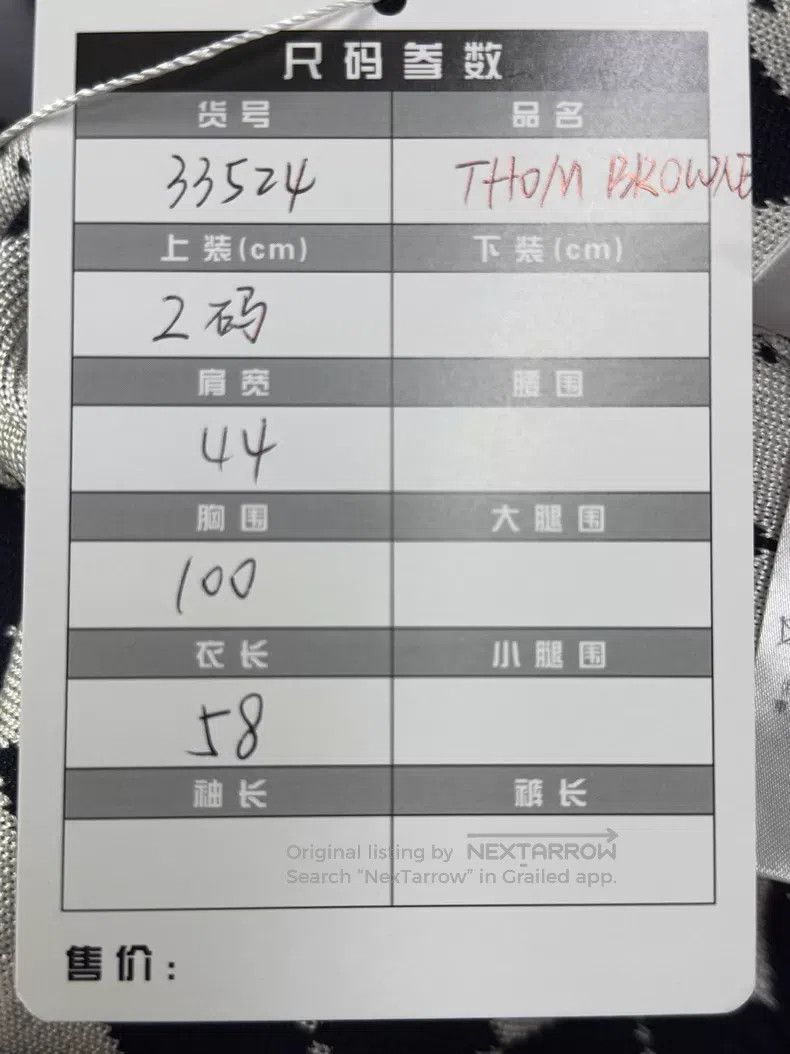 尺码参数
货号 品名
33524 THOM BROWNE
上装(cm) 下装(cm)
2码
肩宽 腰围
44
胸围 大腿围
100
衣长 小腿围
58
袖长 裤长
Original listing by NEXTARROW
Search "NexTarrow" in Grailed app.
售价: